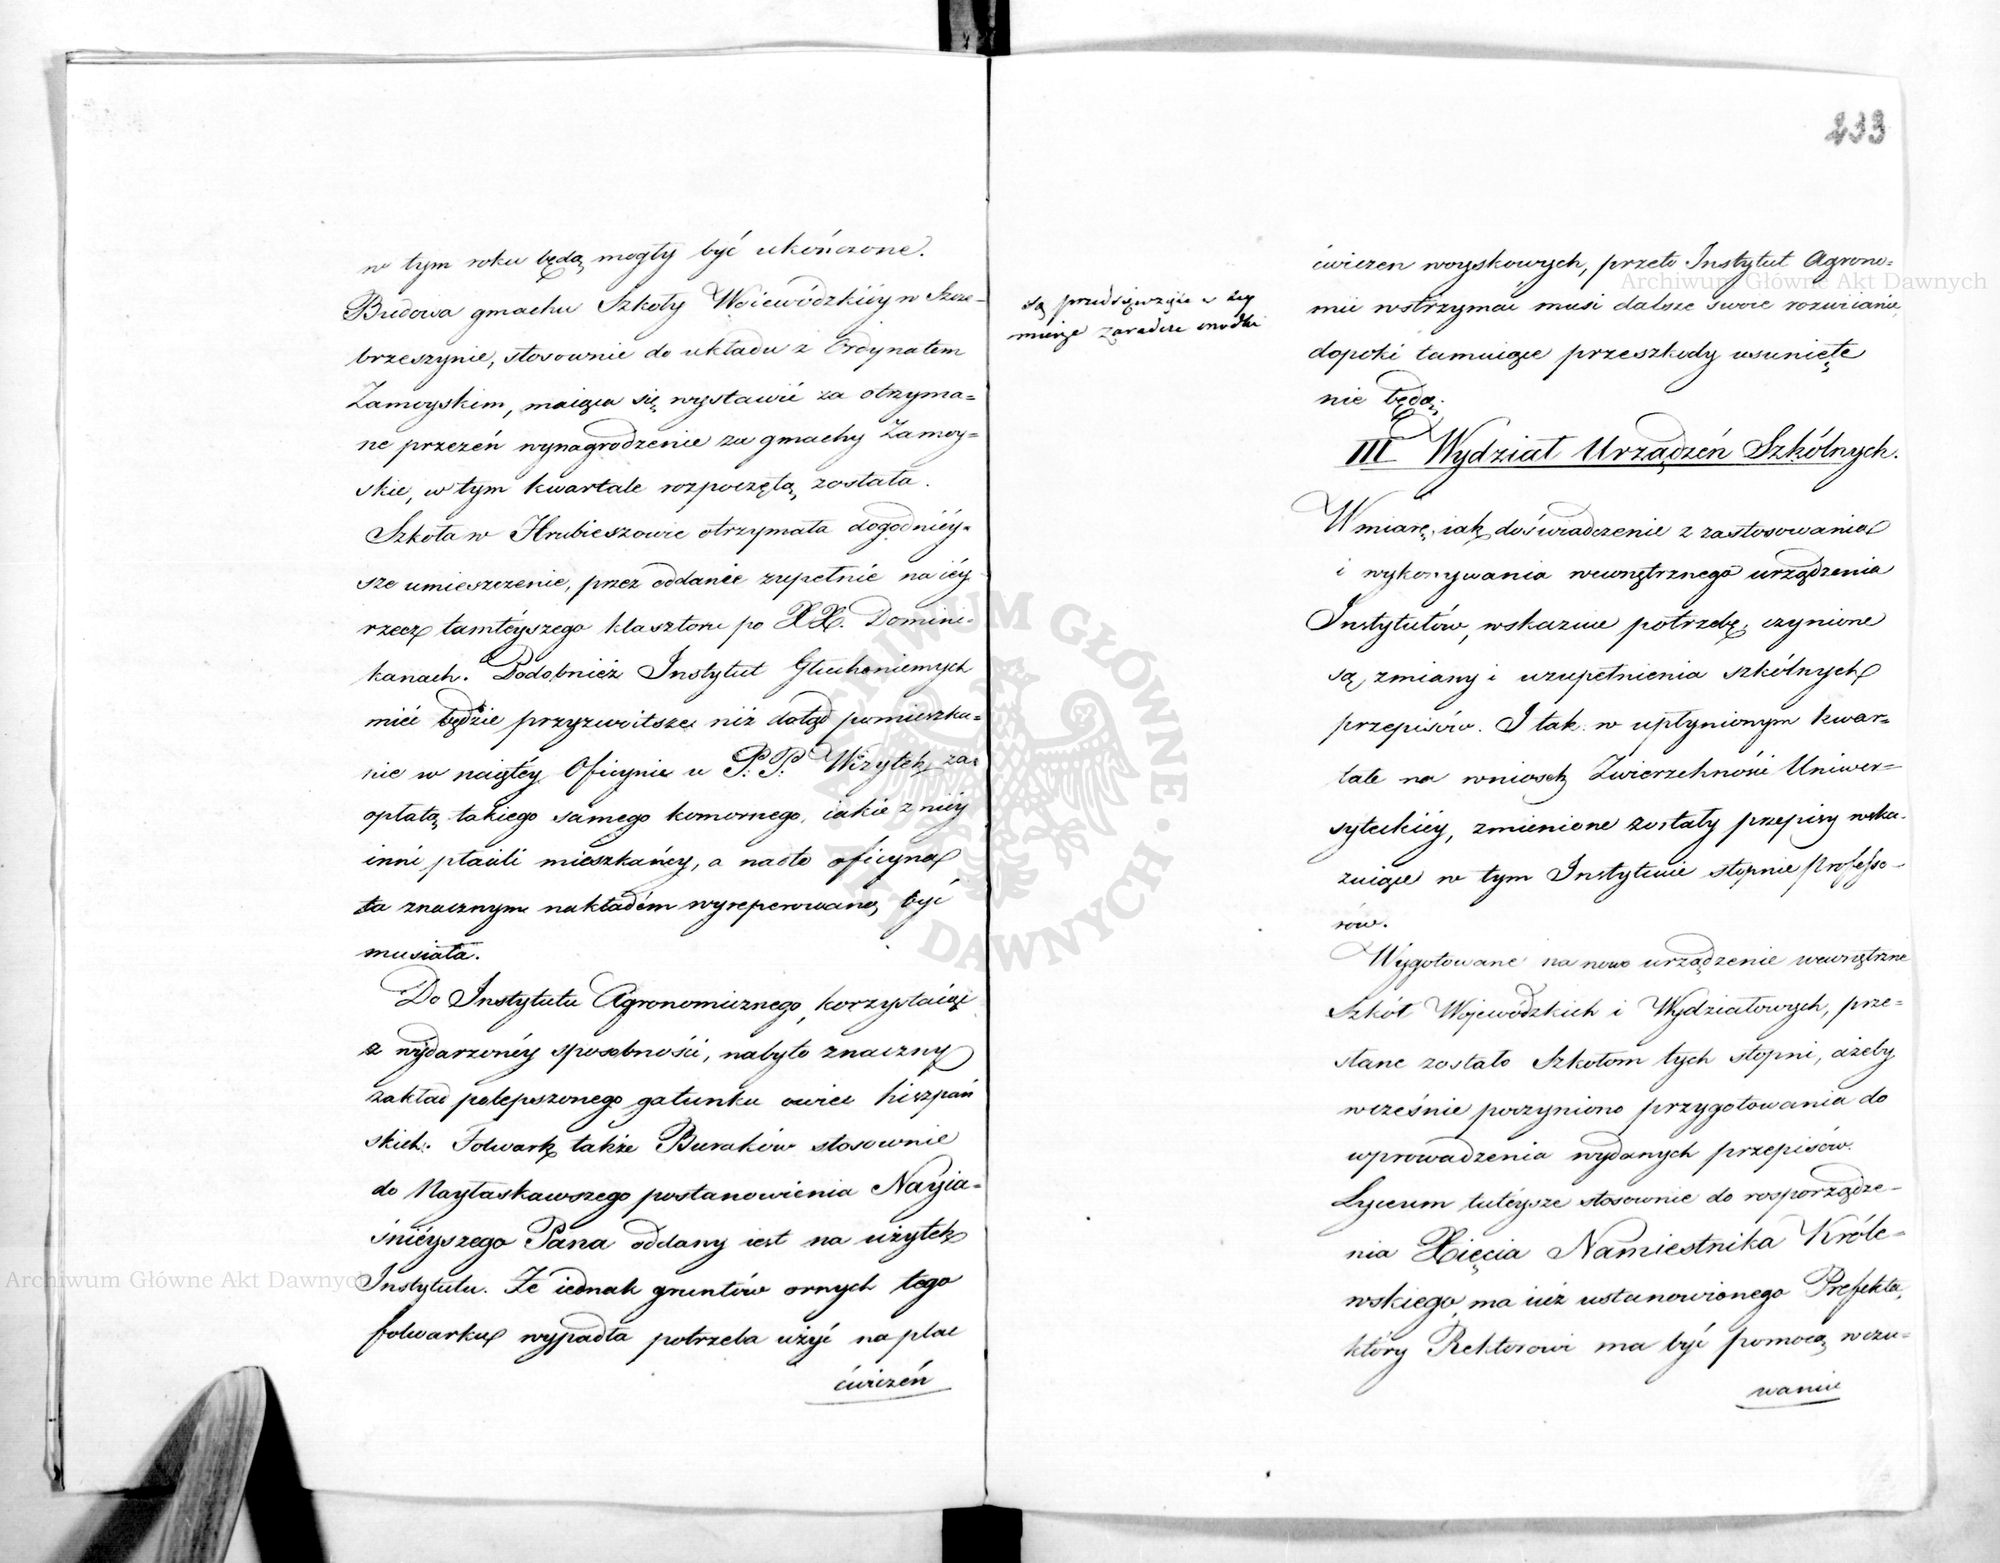 w tym roku będą mogły być ukończone.
Budowa gmachu Szkoły Woiewódzkiéy w Szcze-
brzeszynie, stosownie do układu z Ordynatem
Zamoyskim, maiąca się wystawić za otrzyma=
ne przezeń wynagrodzenie za gmachy Zamoy=
skie, w tym kwartale rozpoczętą została.
Szkoła w Hrubieszowie otrzymała dogodniéy=
sze umieszczenie, przez oddanie zupełnie na iéy
rzecz tamtéyszego klasztoru po XX. Domini-
kanach. Podobnież Instytut Głuchoniemych
mieć będzie przyzwoitsze niż dotąd pomieszka=
nie w naiętéy Oficynie u P.P. Wizytek, za
opłatą takiego samego komornego, iakie z niéy
inni płacili mieszkańcy, a nadto oficyna
ta znacznym nakładem wyreperowaną być
musiała.
Do Instytutu Agronomicznego, korzystaiąc
z wydarzonéy sposobności, nabyto znaczny
zakład polepszonego gatunku owiec hiszpań
skich. Folwark także Buraków stosownie
do Nayłaskawszego postanowienia Nayia=
śniéyszego Pana oddany iest na użytek
Instytutu. Że iednak gruntów ornych tego
folwarku wypadła potrzeba użyć na plac
ćwiczéń
233
są przedsięwzięte w tey
mierze zaradcze środki
ćwiczen woyskowych, przeto Instytut Agrono=
mii wstrzymać musi dalsze swoie rozwiianie,
dopóki tamuiące przeszkody usunięte
nie będą.
III Wydział Urządzéń Szkólnych.
W miarę, iak doświadczenie z zastosowania
i wykonywania wewnętrznego urządzenia
Instytutów, wskazuie potrzebę, czynione
są zmiany i uzupełnienia szkólnych
przepisów. I tak w upłynionym kwar=
tale na wniosek Zwierzchności Uniwer=
syteckiéy, zmienione zostały przepisy wska-
zuiące w tym Instytucie stopnie Professo-
rów.
Wygotowane na nowo urządzenie wewnętrzne
Szkół Wojewódzkich i Wydziałowych, prze=
słane zostało Szkołom tych stopni, ażeby
wcześnie poczyniono przygotowania do
wprowadzenia wydanych przepisów.
Lyceum tutéysze stosownie do rosporządze-
nia Xięcia Namiestnika Króle-
wskiego, ma iuż ustanowionego Prefekta,
który Rektorowi ma być pomocą w czu=
waniu
Archiwum Główne Akt Dawnych
Archiwum Główne Akt Dawnych
ARCHIWUM GŁÓWNE
AKT DAWNYCH